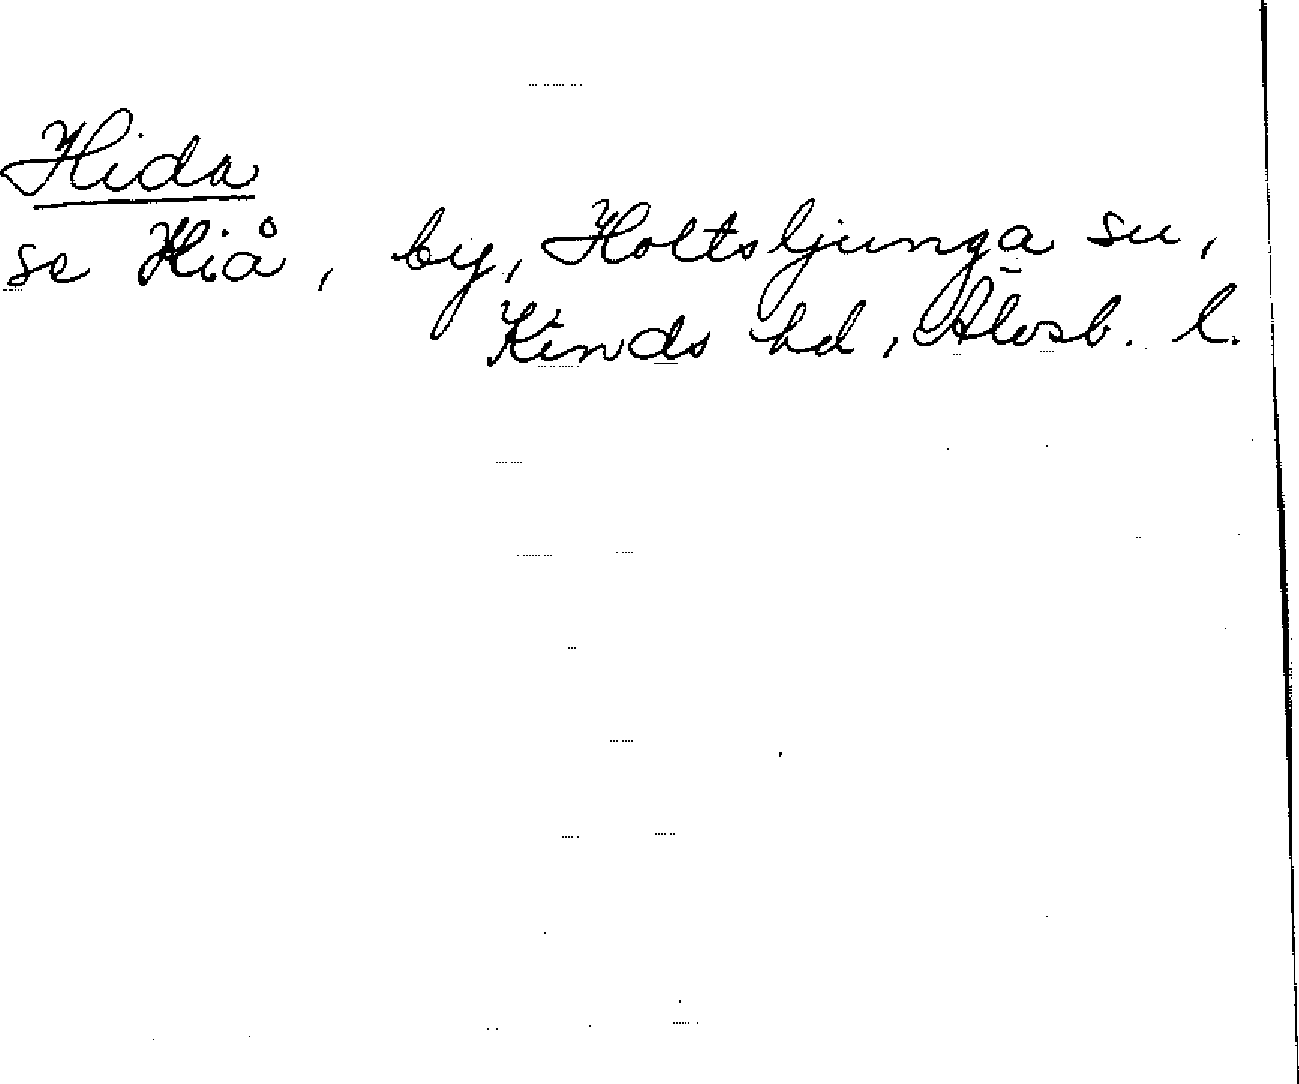 Hida
se Hiå, by, Holtsljunga sn,
Kinds hd, Älvsb. l.